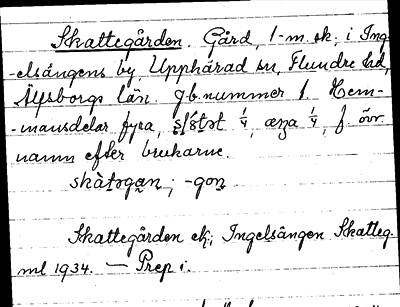 Skattegården. Gård, 1-m. sk. i Ing-
-elsängens by, Upphärad sn, Flundre hd,
Älfsborgs län. Jb. nummer 1. Hem-
-mansdelar fyra, 1/4, 1/4, f. övr.
namn efter brukarne.
skàtogan; -gon
Skattegården ek; Ingelsängen Skatteg.
ml 1934. — Prep i.